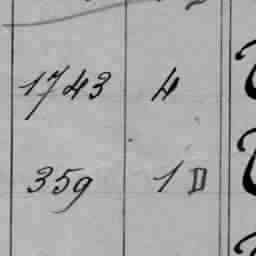 1743 4
359 1 D